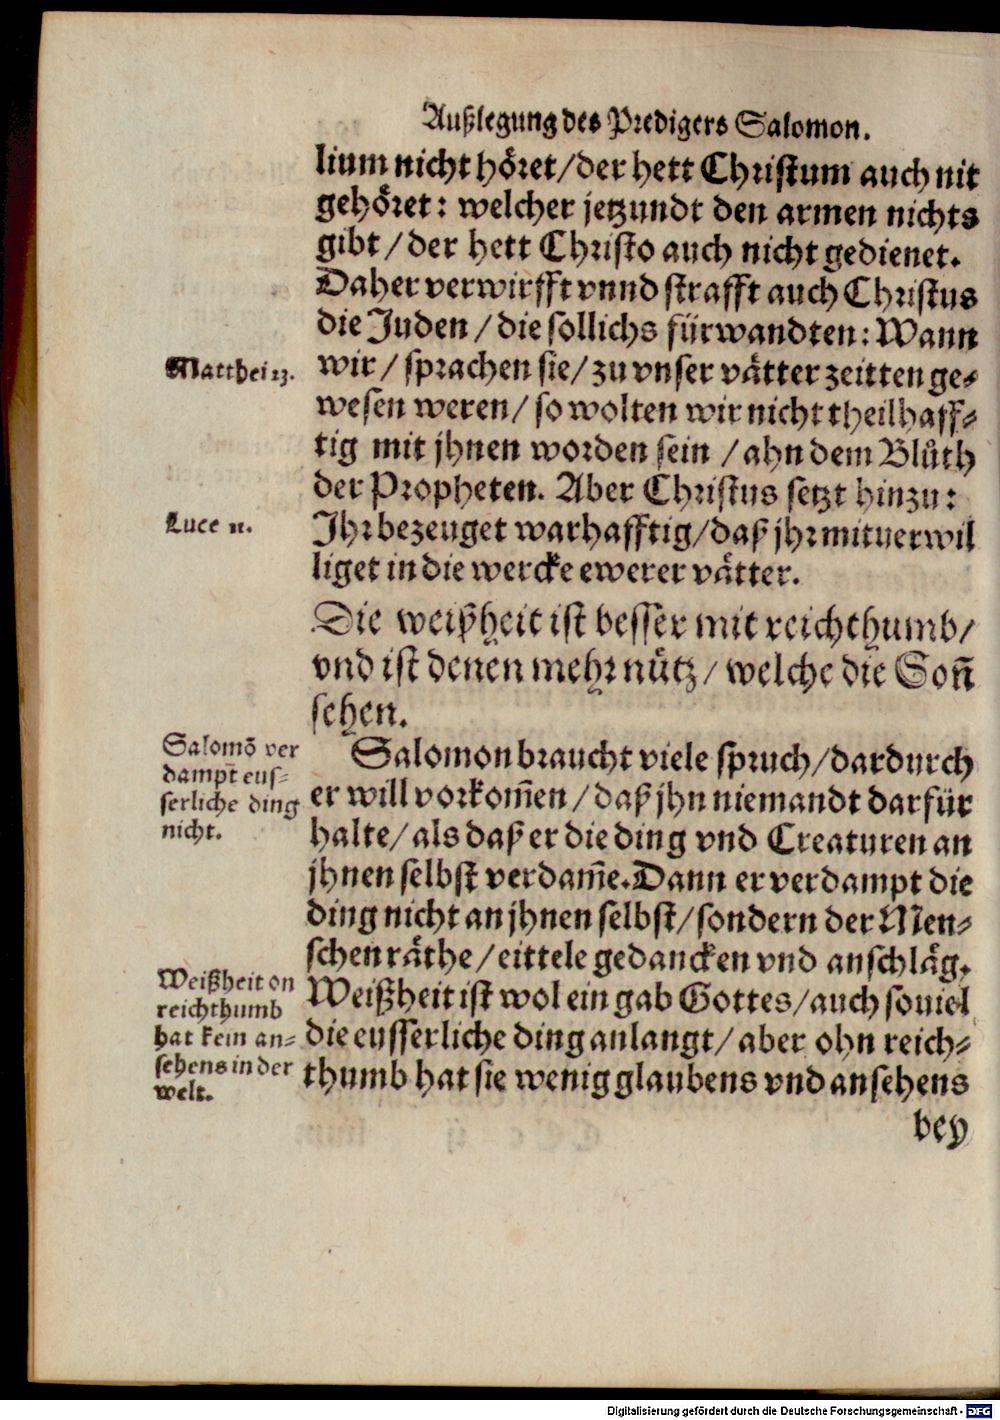 Außlegung des Predigers Salomon.
lium nicht höret/der hett Christum auch nit
gehöret: welcher jetzundt den armen nichts
gibt/der hett Christo auch nicht gedienet.
Daher verwirfft vnnd strafft auch Christus
die Juden/die sollichs fürwandten: Wann
Matthei 23.
wir/sprachen sie/zu vnser vätter zeitten ge-
wesen weren/so wolten wir nicht theilhaff-
tig mit jhnen worden sein/ahn dem Blůth
der Propheten. Aber Christus setzt hinzu:
Luce 11.
Jhr bezeuget warhafftig/daß jhr mituerwil
liget in die wercke ewerer vätter.
Die weißheit ist besser mit reichthumb/
vnd ist denen mehr nütz/welche die Soñ
sehen.
Salomõ ver
dampt̃ eus-
serliche ding
nicht.
Salomon braucht viele spruch/dardurch
er will vorkom̃en/daß jhn niemandt darfür
halte/als daß er die ding vnd Creaturen an
jhnen selbst verdam̃e. Dann er verdampt die
ding nicht an jhnen selbst/sondern der Men-
schen räthe/eittele gedancken vnd anschläg.
Weißheit on
reichthumb
hat kein an-
sehens in der
welt.
Weißheit ist wol ein gab Gottes/auch souiel
die eusserliche ding anlangt/aber ohn reich-
thumb hat sie wenig glaubens vnd ansehens
bey
Digitalisierung gefördert durch die Deutsche Forschungsgemeinschaft - DFG